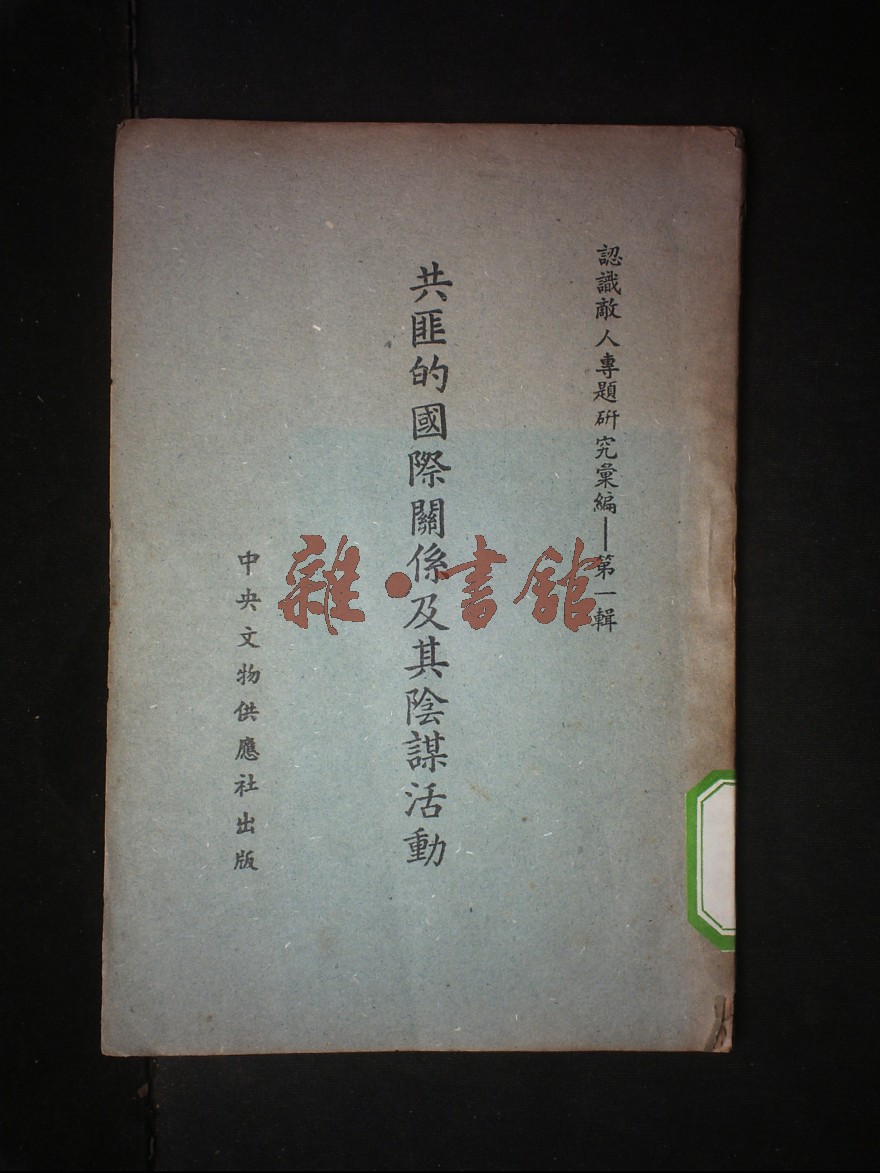 認識敵人專題研究彙編——第一輯
共匪的國際關係及其陰謀活動
中央文物供應社出版
雜·書館